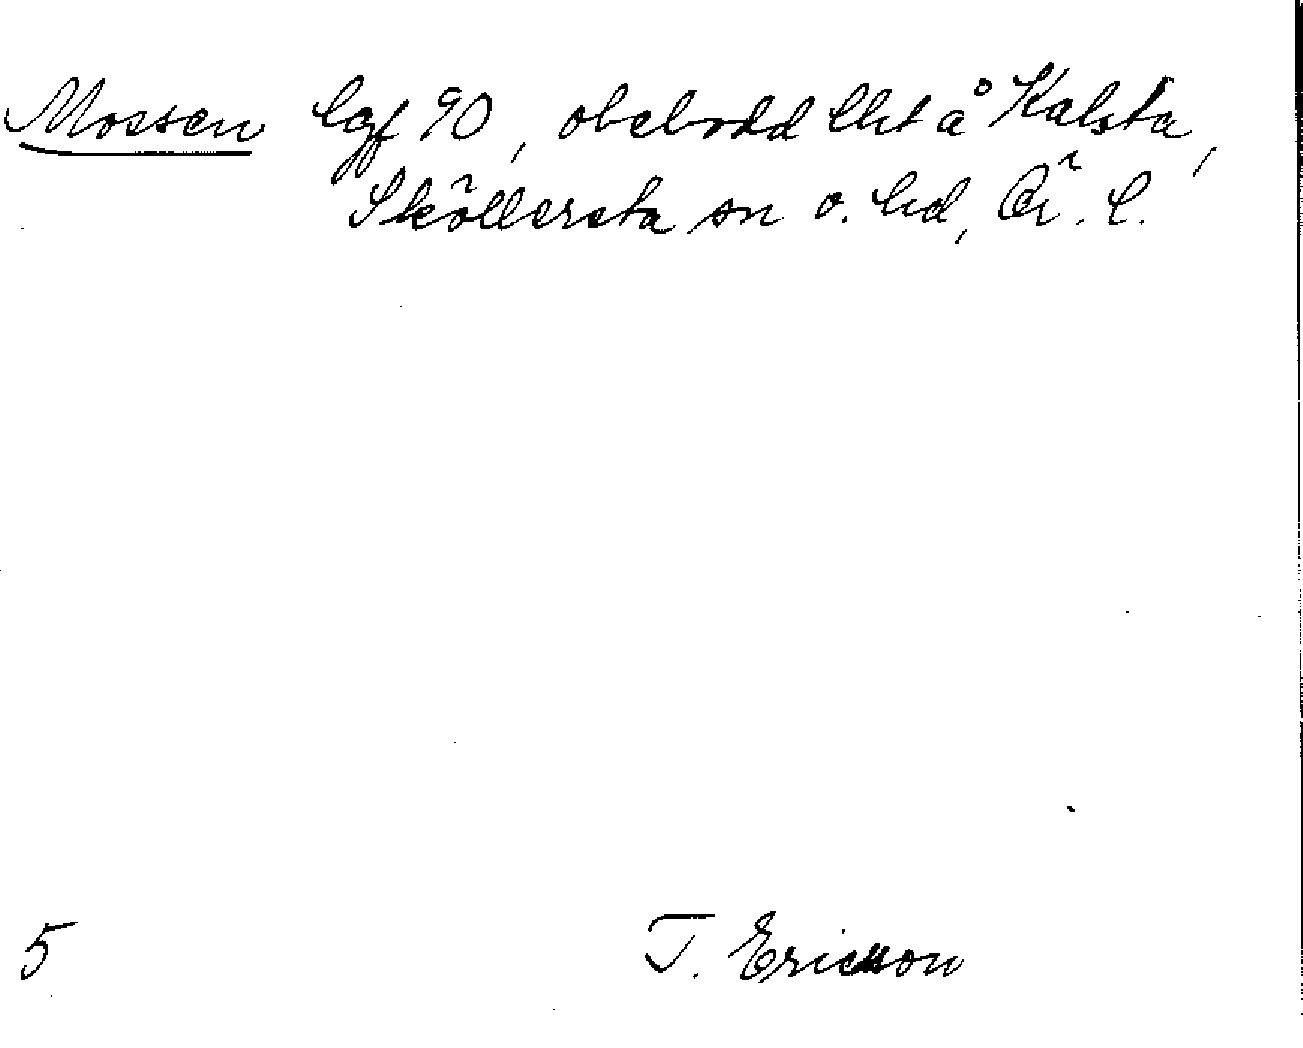 Mossen lgf 90, obebodd lht å Kalsta,
Sköllersta sn o. hd, Ör. l.
5 T. Ericsson